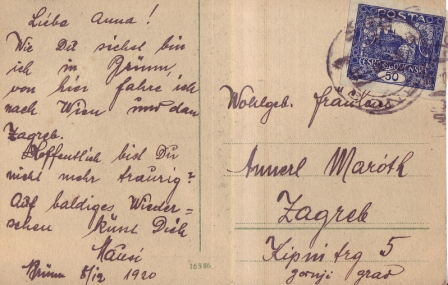 Liebe Anna!
Wie Du siehst bin
ich in Brünn,
von hier fahre ich
nach Wien und dan
Zagreb.
Hoffentlich bist Du
nicht mehr traurig?
Auf baldiges Wieder-
sehen küsst Dich
Mausi
Brünn 8/12 1920
POŠTA
50
Wohlgeb. Fräulein
Annerl Maróth
Zagreb
5
gornji grad